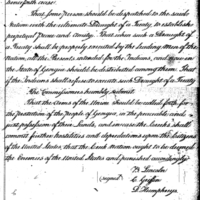 beneficial case.
That some person should be dispatched to the said
Nation with the ultimate Draught of a Treaty, to establish
perpetual Peace and Amity. That when such a Draught of
a Treaty shall be properly executed by the leading Men of the
Nation, all the Presents intended for the Indians, and now in
the State of Georgia should be distributed among them. That
if the Indians shall refuse to execute such Draught of a Treaty
The Commissioners humbly submit
That the Arms of the Union should be called forth for
the protection of the People of Georgia, in the peaceable and
just possession of their Lands; and in case the Creeks shall
commit further hostilities and depredations upon the Citizens
of the United States, that the Creek Nation ought to be deemed
the Enemies of the United States and punished accordingly
B Lincoln
(signed) C. Griffin
D. Humphreys